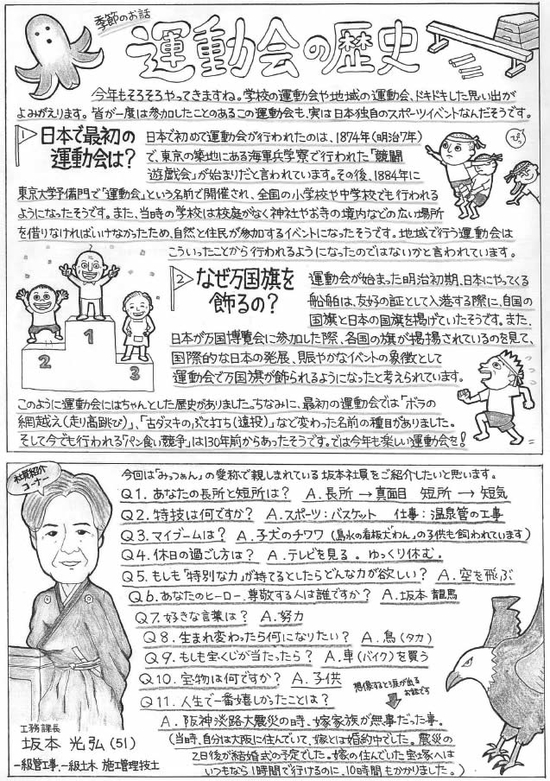 季節のお話
運動会の歴史
今年もそろそろやってきますね。学校の運動会や地域の運動会、ドキドキした思い出が
よみがえります。皆が一度は参加したことのあるこの運動会も、実は日本独自のスポーツイベントなんだそうです。
1
日本で最初の
運動会は?
日本で初めて運動会が行われたのは、1874年(明治7年)
で、東京の築地にある海軍兵学寮で行われた「競闘
遊戯会」が始まりだと言われています。その後、1884年に
東京大学予備門で「運動会」という名前で開催され、全国の小学校や中学校でも行われる
ようになったそうです。また、当時の学校は校庭がなく神社やお寺の境内などの広い場所
を借りなければいけなかったため、自然と住民が参加するイベントになったそうです。地域で行う運動会は
こういったことから行われるようになったのではないかと言われています。
2
なぜ万国旗を
飾るの?
運動会が始まった明治初期、日本にやってくる
船舶は、友好の証として入港する際に、自国の
国旗と日本の国旗を掲げていたそうです。また、
日本が万国博覧会に参加した際、各国の旗が掲揚されているのを見て、
国際的な日本の発展、賑やかなイベントの象徴として
運動会で万国旗が飾られるようになったと考えられています。
2
1
3
このように運動会にはちゃんとした歴史がありました。ちなみに、最初の運動会では「ボラの
網越え(走り高跳び)」、「古ダヌキのつぶて打ち(遠投)」など変わった名前の種目がありました。
そして今でも行われる「パン食い競争」は130年前からあったそうです。では今年も楽しい運動会を!
社員紹介
コーナー
今回は「みっつぁん」の愛称で親しまれている坂本社員をご紹介したいと思います。
Q1. あなたの長所と短所は? A. 長所→真面目 短所→短気
Q2. 特技は何ですか? A. スポーツ:バスケット 仕事:温泉管の工事
Q3. マイブームは? A. 子犬のチワワ(島水の看板犬“わん”の子供も飼われています)
Q4. 休日の過ごし方は? A. テレビを見る。ゆっくり休む.
Q5. もしも「特別な力」が持てるとしたらどんな力が欲しい? A. 空を飛ぶ
Q6. あなたのヒーロー、尊敬する人は誰ですか? A. 坂本龍馬
Q7. 好きな言葉は? A. 努力
Q8. 生まれ変わったら何になりたい? A. 鳥(タカ)
Q9. もしも宝くじが当たったら? A. 車(バイク)を買う
Q10. 宝物は何ですか? A. 子供
Q11. 人生で一番嬉しかったことは?
想像すると涙が出る
お話です
A. 阪神淡路大震災の時、嫁家族が無事だった事。
(当時、自分は大阪に住んでいて、嫁とは婚約中でした。震災の
2日後が結婚式の予定でした。嫁の住んでいた宝塚へは
いつもなら1時間で行けるのに、10時間もかかりました。)
工務課長
坂本 光弘(51)
一級管工事、一級土木 施工管理技士